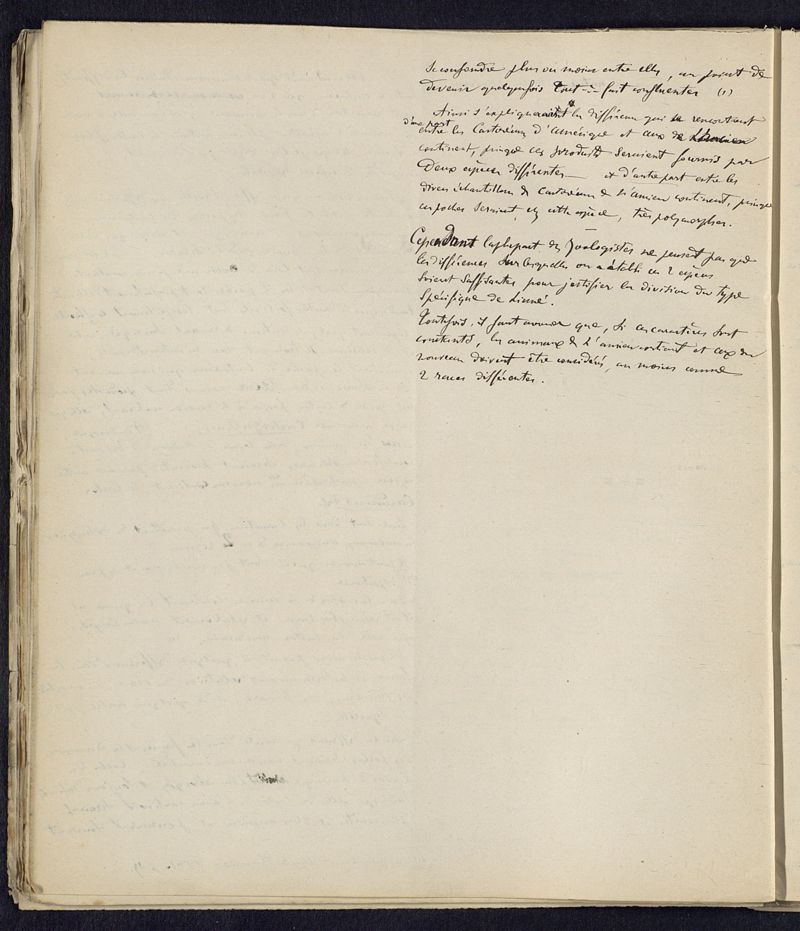 se confondre plus ou moins entre elles, au point de
devenir quelquefois tout-à-fait confluentes (1)
Ainsi s'expliqueraient les différences qui se rencontrent
d'une part
entre les Castoréums d'Amérique et ceux de
continent, puisque ces produits seraient fournis par
Deux espèces différentes — et d'autre part entre les
divers échantillons de Castoréum de l'ancien continent, puisque
ces poches seraient, chez cette espèce, très polymorphes.
Cependant la plupart des Zoologistes ne pensent pas que
les différences sur lesquelles on a établi ces 2 espèces
soient suffisantes pour justifier la division du type
spécifique de Linné.
Toutefois, il faut avouer que, si ces caractères sont
constants, les animaux de l'ancien continent et ceux du
nouveau doivent être considérés, au moins comme
2 races différentes.